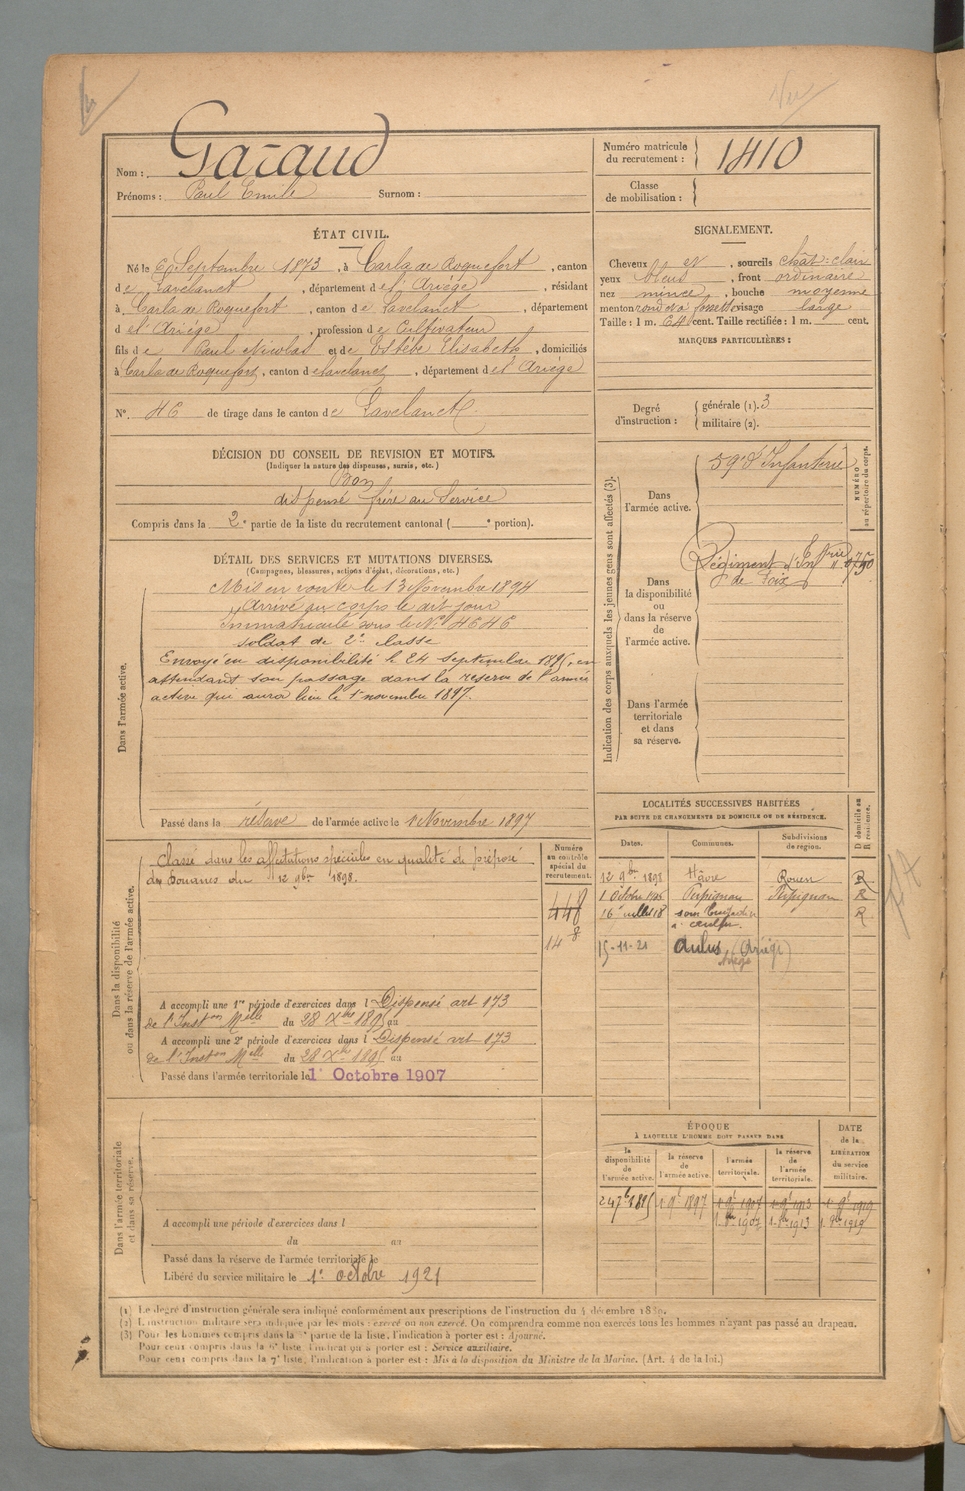 Nom : Garaud
Prénoms : Paul Emile Surnom :
Numéro matricule du recrutement : 1410
Classe de mobilisation :
ÉTAT CIVIL.
Né le 6 Septembre 1873, à Carla de Roquefort, canton
de Lavelanet, département de l'Ariège, résidant
à Carla de Roquefort, canton de Lavelanet, département
de l'Ariège, profession de Cultivateur
fils de Paul Nicolas et de Estèbe Elisabeth, domiciliés
à Carla de Roquefort, canton de Lavelanet, département de l'Ariège
N°. 46 de tirage dans le canton de Lavelanet
SIGNALEMENT.
Cheveux et, sourcils chât: clair
yeux bleus, front ordinaire
nez mince, bouche moyenne
menton rond et à fossette visage large
Taille : 1 m. 64 cent. Taille rectifiée : 1 m. cent.
MARQUES PARTICULIÈRES :
Degré d'instruction : générale (1). 3
militaire (2).
DÉCISION DU CONSEIL DE REVISION ET MOTIFS.
(Indiquer la nature des dispenses, sursis, etc.)
Bon
dispensé frère au Service
Compris dans la 2e partie de la liste du recrutement cantonal ( e portion).
DÉTAIL DES SERVICES ET MUTATIONS DIVERSES.
(Campagnes, blessures, actions d'éclat, décorations, etc.)
Dans l'armée active.
Mis en route le 13 Novembre 1894
Arrivé au corps le dit jour
Immatriculé sous le N° 4646
soldat de 2e classe
Envoyé en disponibilité le 24 septembre 1895, en
attendant son passage dans la réserve de l'armée
active qui aura lieu le 1er novembre 1897.
Passé dans la réserve de l'armée active le 1 Novembre 1897
Indication des corps auxquels les jeunes gens sont affectés (3).
NUMÉRO au répertoire du corps.
Dans l'armée active.
59e d'Infanterie
Dans la disponibilité ou dans la réserve de l'armée active.
Régiment d'Infrie
de Foix
Dans l'armée territoriale et dans sa réserve.
LOCALITÉS SUCCESSIVES HABITÉES
PAR SUITE DE CHANGEMENTS DE DOMICILE OU DE RÉSIDENCE.
Dates. Communes. Subdivisions de région. D domicile ou R résidence.
12 9bre 1898 Hâvre Rouen R
1 Octobre Perpignan Perpignan R
R
15-11-21 Aulus (Ariège)
Dans la disponibilité ou dans la réserve de l'armée active.
Numéro au contrôle spécial du recrutement.
Classé dans les affectations spéciales en qualité de préposé
des Douanes du 12 9bre 1898.
448
148
A accompli une 1re période d'exercices dans l Dispensé art 173
de l'Inston Melle du 28 Xbre 1895 au
A accompli une 2e période d'exercices dans l Dispensé art 173
de l'Inston Melle du 28 Xbre 1895 au
Passé dans l'armée territoriale le 1er Octobre 1907
Dans l'armée territoriale et dans sa réserve.
A accompli une période d'exercices dans l
du au
Passé dans la réserve de l'armée territoriale le
Libéré du service militaire le 1er octobre 1921
ÉPOQUE
À LAQUELLE L'HOMME DOIT PASSER DANS
la disponibilité de l'armée active. la réserve de l'armée active. l'armée territoriale. la réserve de l'armée territoriale. DATE de la LIBÉRATION du service militaire.
24 7bre 1895 1 9bre 1897 1 9bre 1907 1 9bre 1913 1 9bre 1919
1 8bre 1907 1 8bre 1913 1 8bre 1919
(1) Le degré d'instruction générale sera indiqué conformément aux prescriptions de l'instruction du 4 décembre 1889.
(2) L'instruction militaire sera indiquée par les mots : exercé ou non exercé. On comprendra comme non exercés tous les hommes n'ayant pas passé au drapeau.
(3) Pour les hommes compris dans la partie de la liste, l'indication à porter est : Ajourné.
Pour ceux compris dans la liste l'indication à porter est : Service auxiliaire.
Pour ceux compris dans la 7e liste, l'indication à porter est : Mis à la disposition du Ministre de la Marine. (Art. 4 de la loi.)